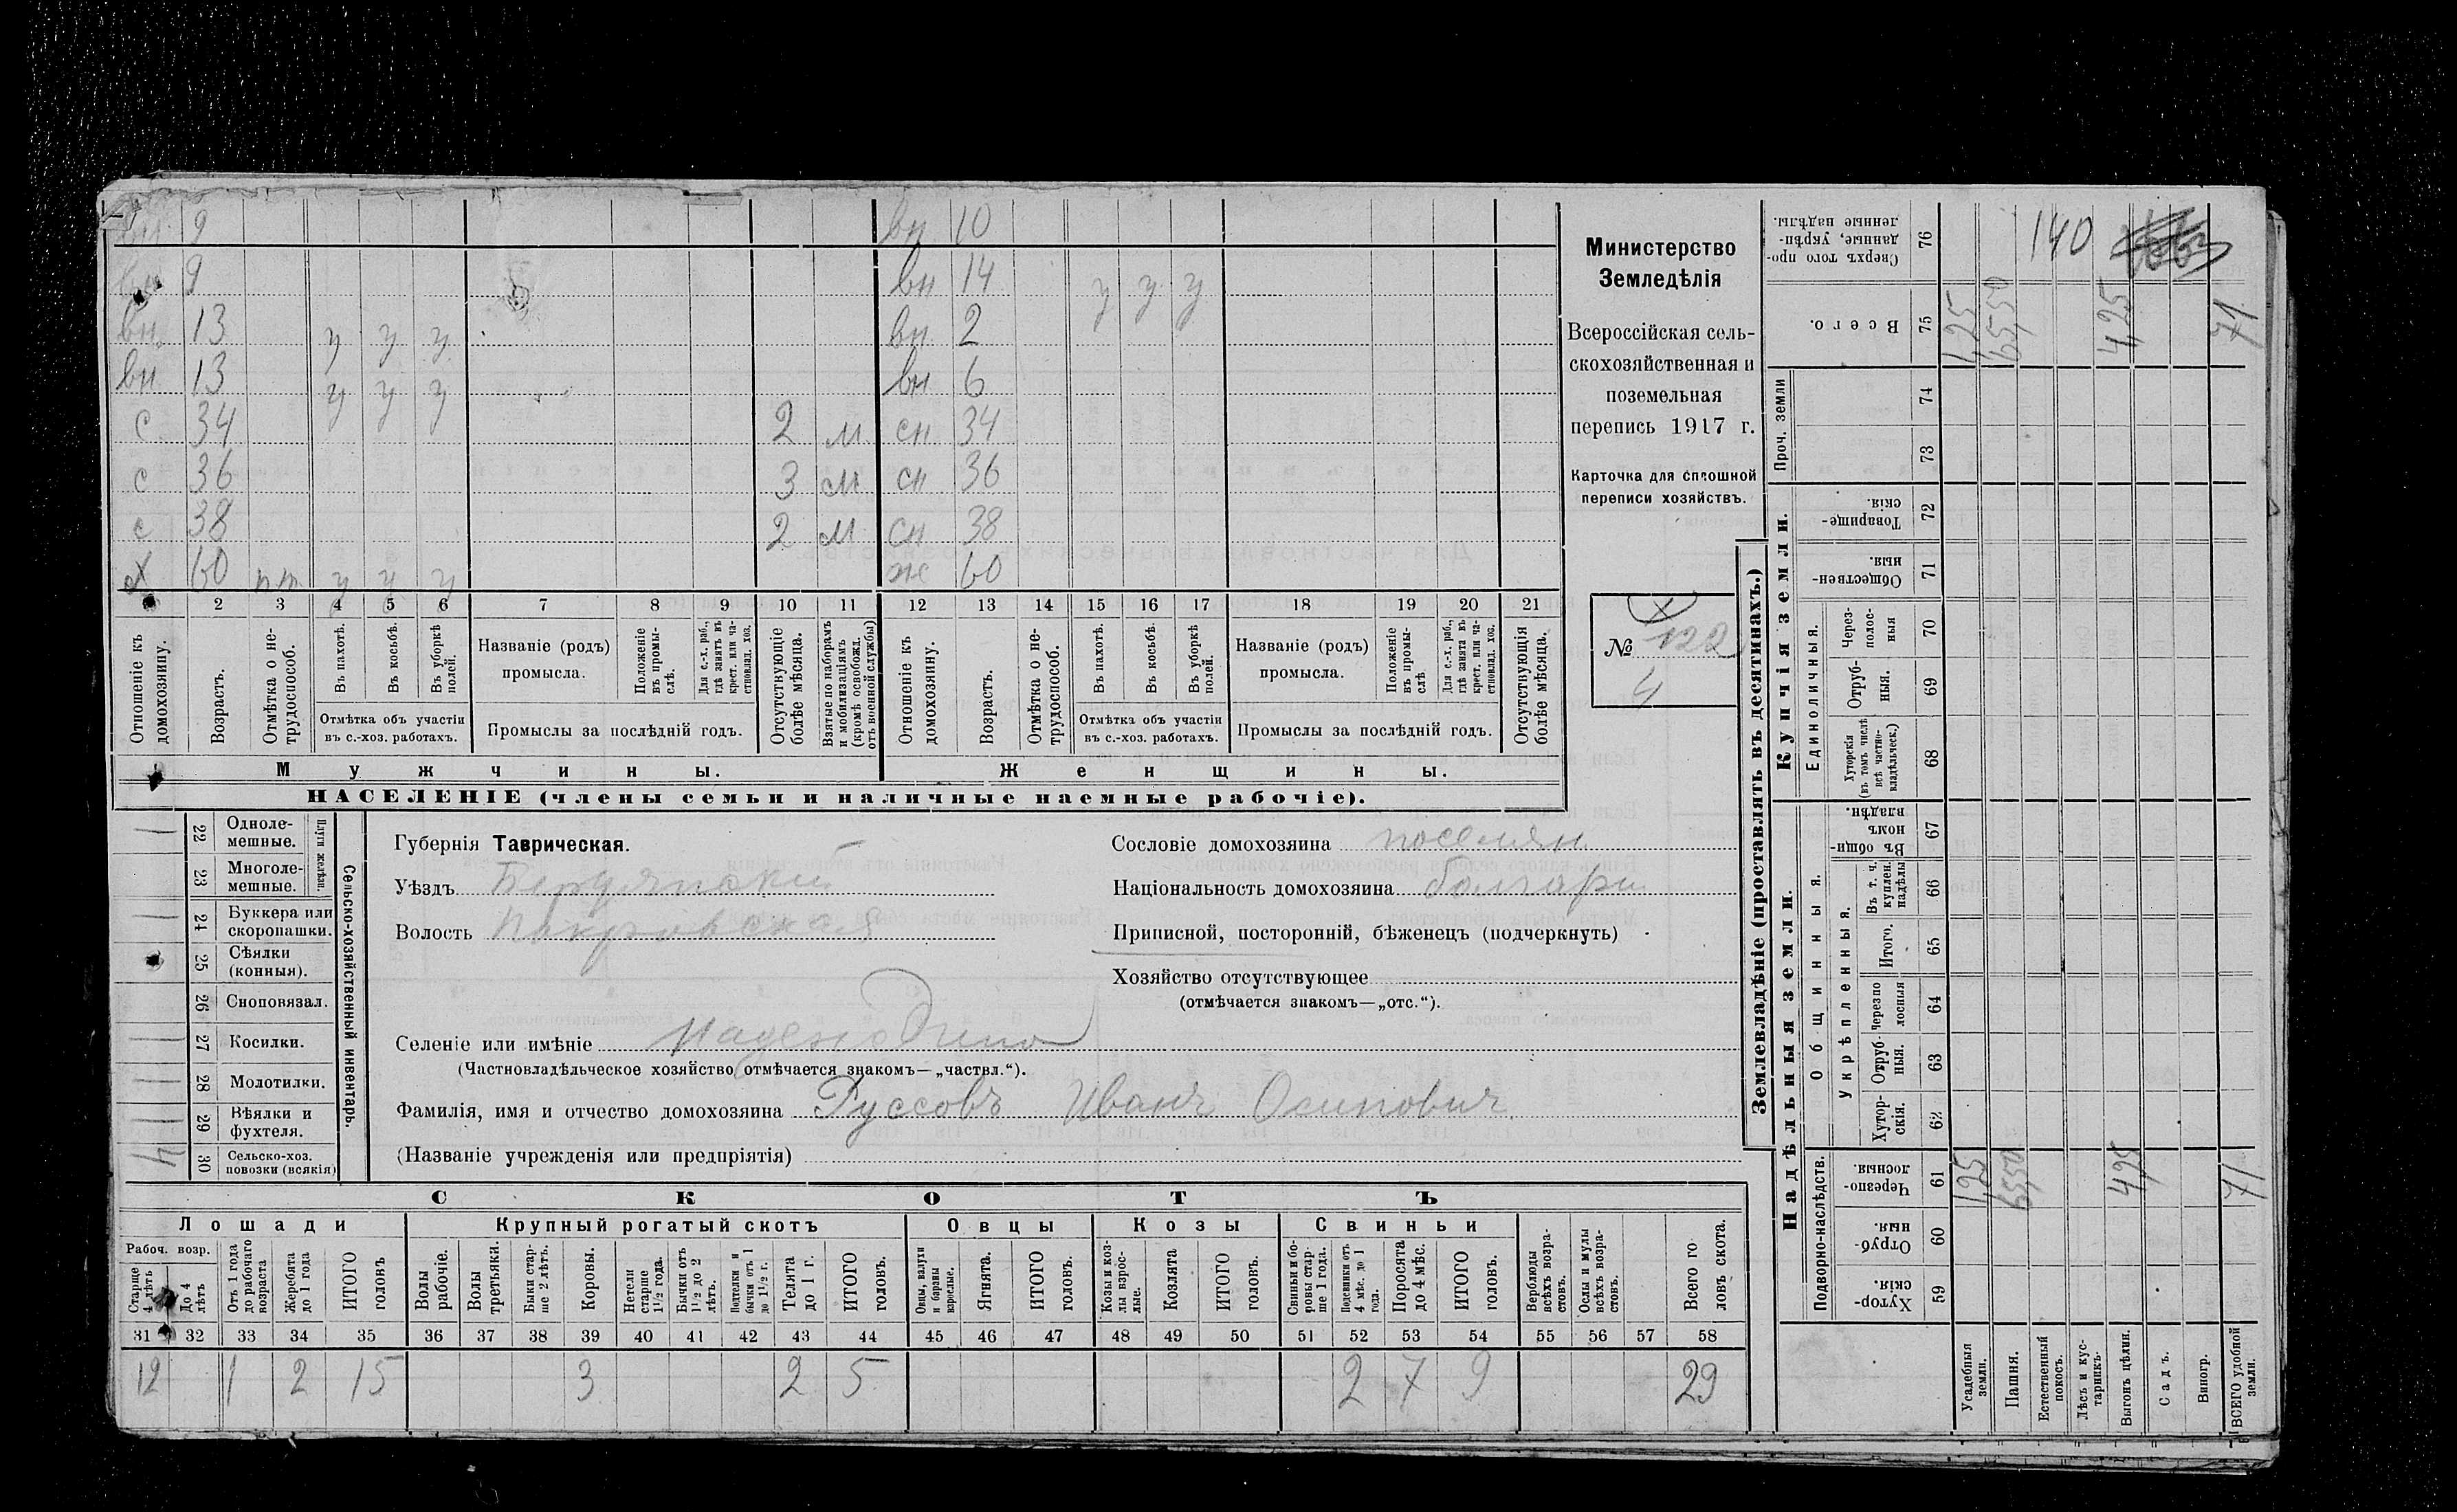 вн 9 вн 10
вн 9 вн 14 у у у
вн. 13 у у у вн 2
вн 13 у у у вн 6
с 34 2 м сн 34
с 36 3 м сн 36
с 38 2 м сн 38
60 у у у ж 60
1 2 3 4 5 6 7 8 9 10 11 12 13 14 15 16 17 18 19 20 21
Отношеніе къ домохозяину.
Возрастъ.
Отмѣтка о нетрудоспособ.
Въ пахотѣ.
Въ косьбѣ.
Въ уборкѣ полей.
Отмѣтка объ участіи
въ с.-хоз. работахъ.
Названіе (родъ)
промысла.
Положеніе въ промыслѣ.
Для с.-х. раб., гдѣ занятъ въ крест. или частновлад. хоз.
Промыслы за послѣдній годъ.
Отсутствующіе болѣе мѣсяца.
Взятые по наборамъ и мобилизаціямъ (кромѣ освобожд. отъ военной службы)
Отношеніе къ домохозяину.
Возрастъ.
Отмѣтка о нетрудоспособ.
Въ пахотѣ.
Въ косьбѣ.
Въ уборкѣ полей.
Отмѣтка объ участіи
въ с.-хоз. работахъ.
Названіе (родъ)
промысла.
Положеніе въ промыслѣ
Для с.-х. раб., гдѣ занята въ крест. или частновлад. хоз.
Промыслы за послѣдній годъ.
Отсутствующія болѣе мѣсяца.
Мужчины. Женщины.
НАСЕЛЕНІЕ (члены семьи и наличные наемные рабочіе).
Министерство
Земледѣлія
Всероссійская сель-
скохозяйственная и
поземельная
перепись 1917 г.
Карточка для сплошной
переписи хозяйствъ.
№ 122
4
22 Однолемешные.
23 Многолемешные.
Плуги желѣзн.
24 Буккера или скоропашки.
25 Сѣялки (конныя).
26 Сноповязал.
27 Косилки.
28 Молотилки.
29 Вѣялки и фухтеля.
30 Сельско-хоз. повозки (всякія) 4
Сельско-хозяйственный инвентарь.
Губернія Таврическая.
Уѣздъ Бердянскій
Волость Покровская
Сословіе домохозяина поселян.
Національность домохозяина болгары
Приписной, посторонній, бѣженецъ (подчеркнуть)
Хозяйство отсутствующее
(отмѣчается знакомъ—„отс.“).
Селеніе или имѣніе
(Частновладѣльческое хозяйство отмѣчается знакомъ—„частвл.“).
Фамилія, имя и отчество домохозяина Руссовъ Иванъ Осипович
(Названіе учрежденія или предпріятія)
СКОТЪ
Лошади Крупный рогатый скотъ Овцы Козы Свиньи
Рабоч. возр.
Старше 4 лѣтъ
До 4 лѣтъ
Отъ 1 года до рабочаго возраста
Жеребята до 1 года
ИТОГО головъ
Волы рабочіе.
Волы третьяки.
Быки старше 2 лѣтъ.
Коровы.
Нетели старше 1 1/2 года.
Бычки отъ 1 1/2 до 2 лѣтъ.
Подтелки и бычки отъ 1 до 1 1/2 г.
Телята до 1 г.
ИТОГО головъ.
Овцы, валухи и бараны взрослые.
Ягнята.
ИТОГО головъ.
Козы и козлы взрослые.
Козлята
ИТОГО головъ.
Свиньи и боровы старше 1 года.
Подсвинки отъ 4 мѣс. до 1 года.
Поросята до 4 мѣс.
ИТОГО головъ.
Верблюды всѣхъ возрастовъ.
Ослы и мулы всѣхъ возрастовъ.
Всего головъ скота.
31 32 33 34 35 36 37 38 39 40 41 42 43 44 45 46 47 48 49 50 51 52 53 54 55 56 57 58
12 1 2 15 3 2 5 2 7 9 29
Землевладѣніе (проставлять въ десятинахъ.)
Сверхъ того проданные, укрѣпленные надѣлы. 76 140
Всего. 75 1,25 65,50 4,25 71
Проч. земли 74 73
Купчія земли.
Товарищескія. 72
Общественныя. 71
Единоличныя.
Черезполосныя 70
Отрубныя. 69
Хуторскія (въ томъ числѣ всѣ частновладѣльческ.) 68
Надѣльныя земли.
Общинныя.
Въ общинномъ владѣн. 67
Укрѣпленныя.
Въ т. ч. куплен. надѣлы 66
Итого. 65
Черезполосныя 64
Отрубныя. 63
Хуторскія. 62
Подворно-наслѣдств.
Черезполосныя. 61 1,25 65,50 4,25 71
Отрубныя. 60
Хуторскія. 59
Усадебныя земли.
Пашня.
Естественный покосъ.
Лѣсъ и кустарникъ.
Выгонъ цѣлин.
Садъ.
Виногр.
ВСЕГО удобной земли.